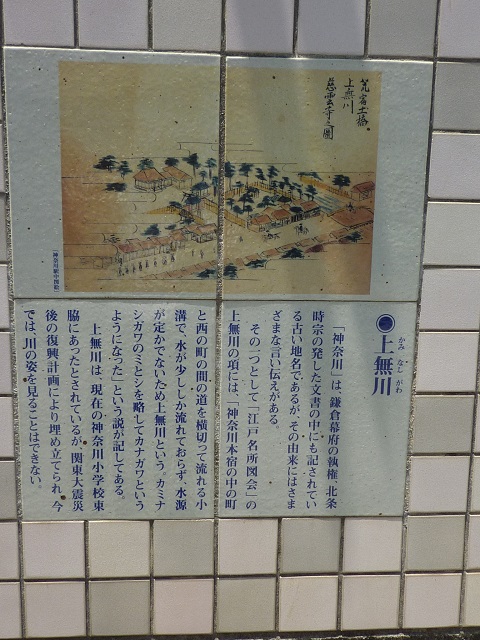 荒宿土橋
上無川
慈雲寺之圖
「神奈川駅中図絵」
◉上無川
かみなしがわ
「神奈川」は、鎌倉幕府の執権、北条
時宗の発した文書の中にも記されてい
る古い地名であるが、その由来にはさま
ざまな言い伝えがある。
その一つとして「江戸名所図会」の
上無川の項には、「神奈川本宿の中の町
と西の町の間の道を横切って流れる小
溝で、水が少ししか流れておらず、水源
が定かでないため上無川という。カミナ
シガワのミとシを略してカナガワという
ようになった」という説が記してある。
上無川は、現在の神奈川小学校東
脇にあったとされているが、関東大震災
後の復興計画により埋め立てられ、今
では、川の姿を見ることはできない。